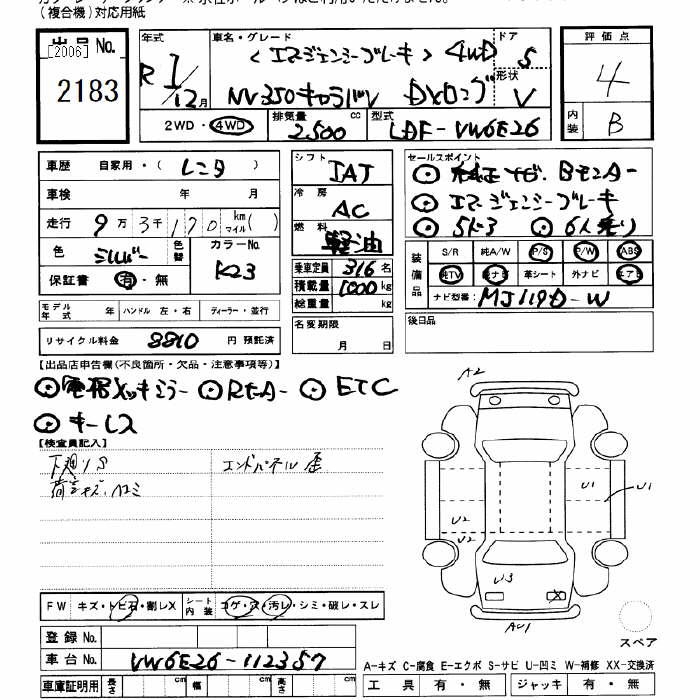 (複合機)対応用紙
出品 No.
[2006]
2183
年式
R1/12月
車名・グレード
<エマージェンシーブレーキ> 4WD
NV350キャラバン DXロング
ドア
5
形状
V
評価点
4
内装
B
2WD・4WD
排気量
2,500 cc
型式
LDF-VW6E26
車歴
自家用・(レンタ)
車検
年 月
走行
9万3千170 km マイル( )
色
シルバー
色替
カラーNo.
K23
保証書
有・無
シフト
IAT
冷房
AC
燃料
軽油
乗車定員 3/6名
積載量 1000 kg
総重量 kg
セールスポイント
純正ナビ、Bモニター
エマージェンシーブレーキ
5ドア 6人乗り
装備品
S/R 純A/W P/S P/W ABS
純TV 純ナビ 革シート 外ナビ エアB
ナビ型番: MJ119D-W
モデル年式 年 ハンドル 左・右 ディーラー・並行
リサイクル料金 8810 円 預託済
名変期限
月 日
後日品
【出品店申告欄(不良箇所・欠品・注意事項等)】
電格メッキミラー Rモニター ETC
キーレス
【検査員記入】
下廻りS エンドパネル歪
A2
U1
U1
U2
U2
U3
X
AU1
スペア
FW キズ・トビ石・割レX
シート内装 コゲ・穴・汚レ・シミ・破レ・スレ
登録 No.
車台 No. VW6E26-112357
車庫証明用 長さ cm 幅 cm 高さ cm
A-キズ C-腐食 E-エクボ S-サビ U-凹ミ W-補修 XX-交換済
工具 有・無 ジャッキ 有・無